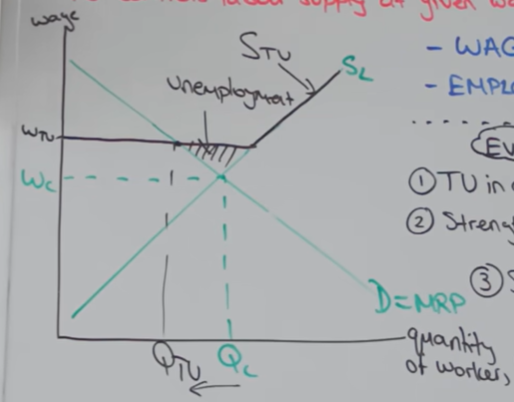 labour supply at given
wage
STU
SL
- WAG
- EMPL
unemployment
WTU
WC
EV
① TU in
② Streng
③ S
D=MRP
QTU
QC
quantity
of workers,